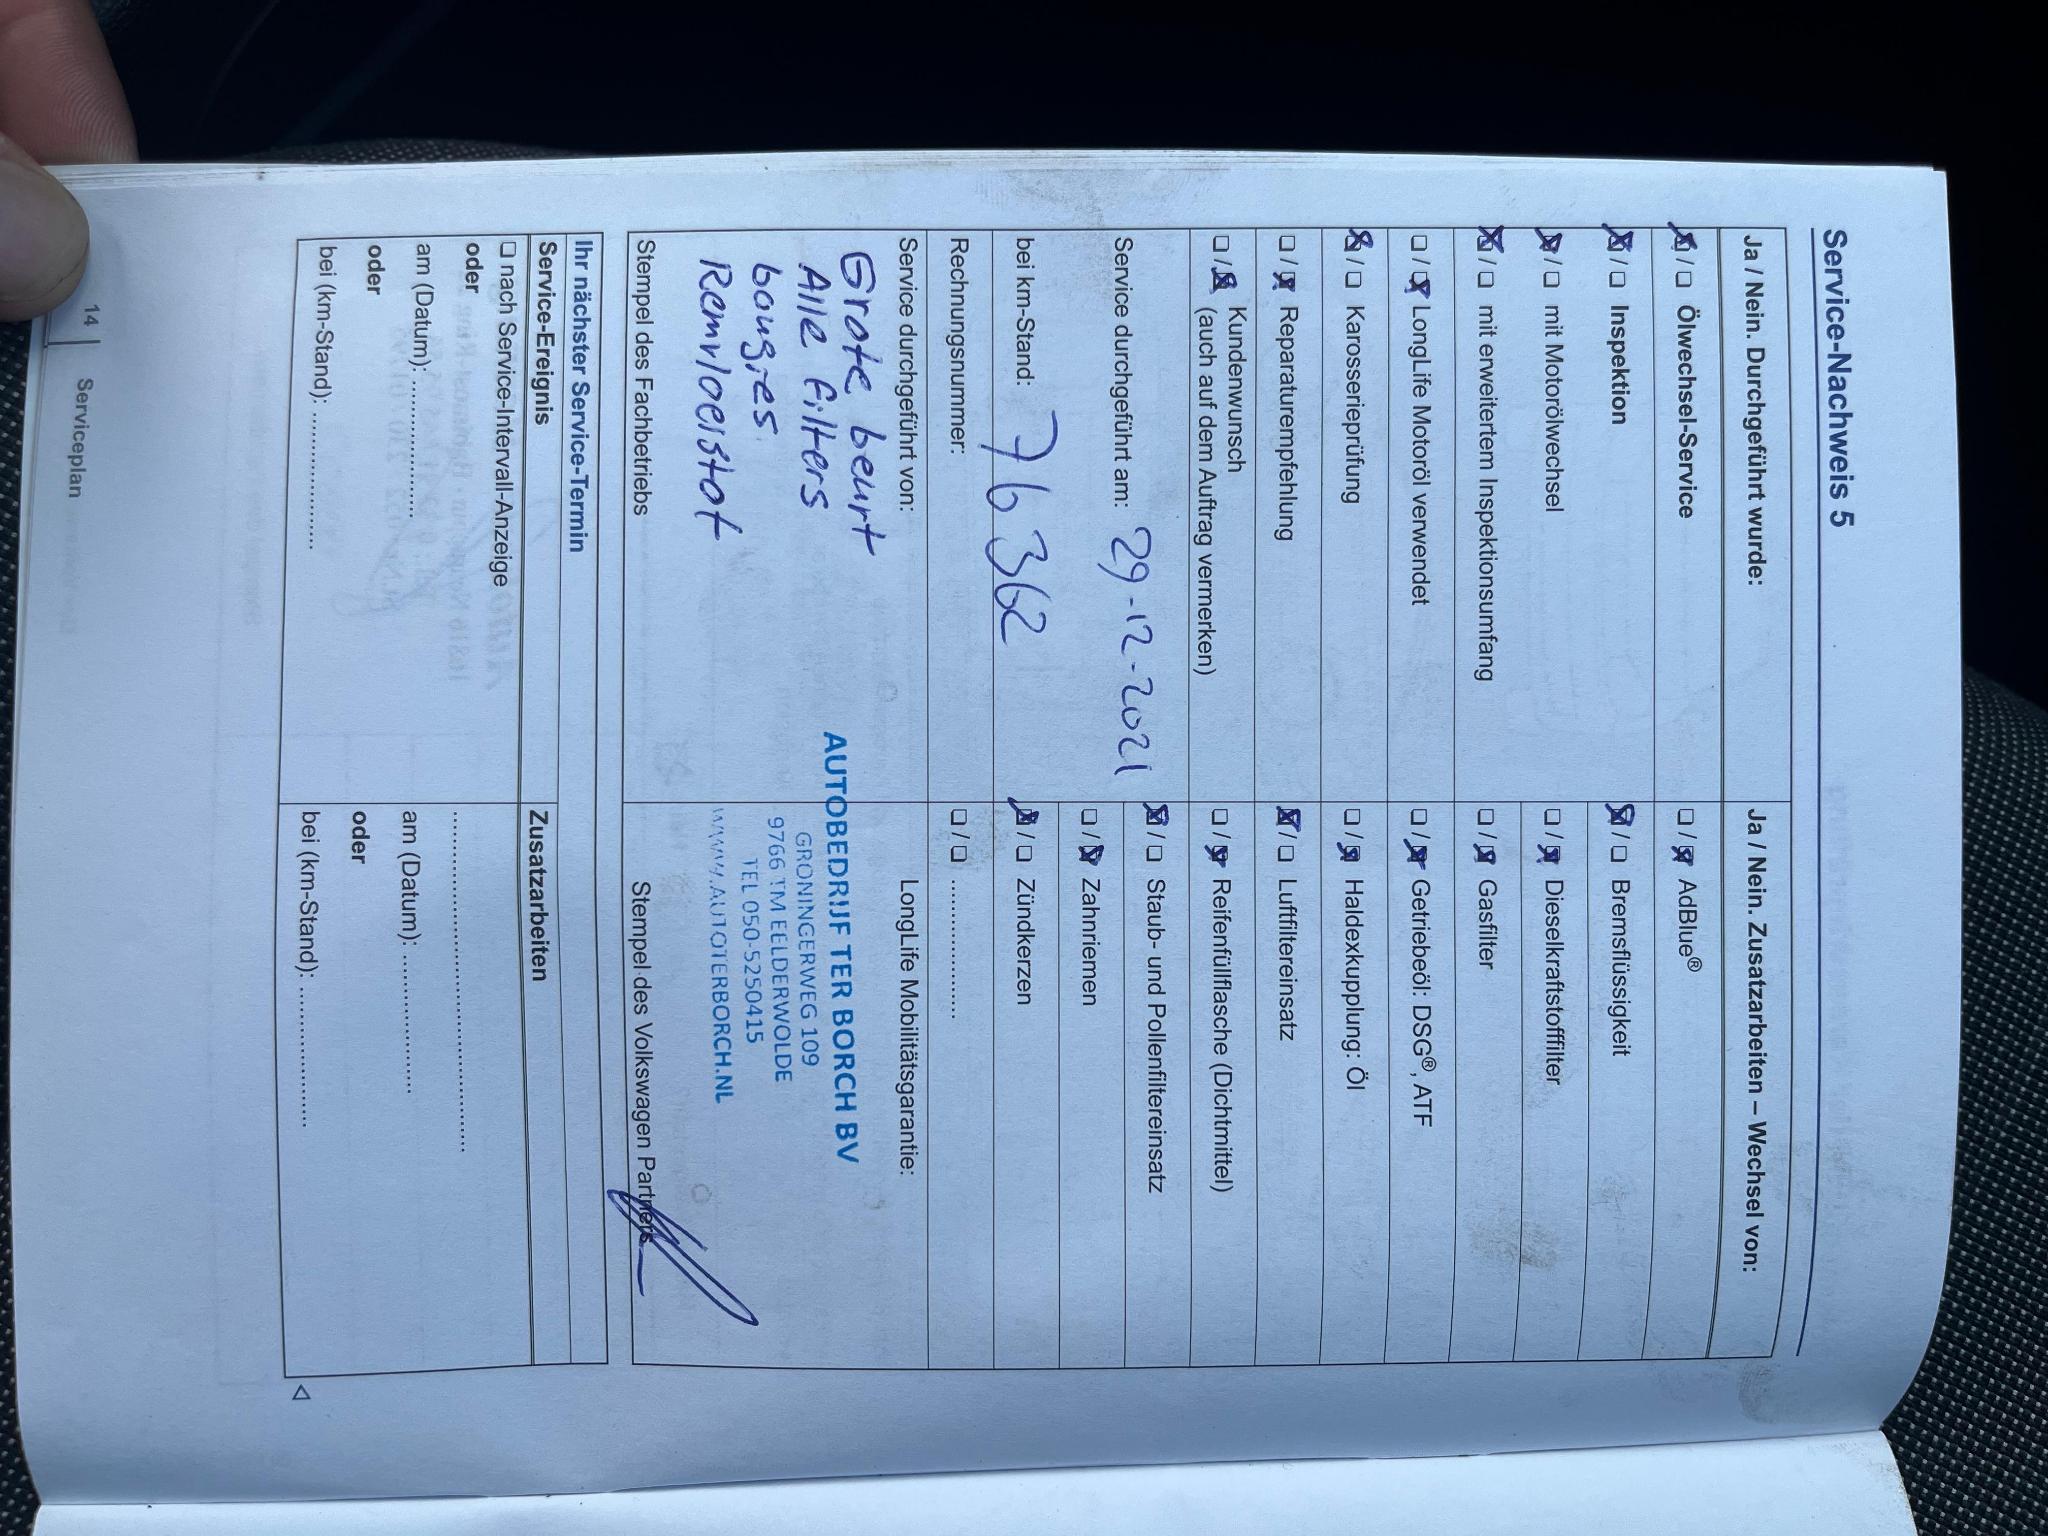 Service-Nachweis 5
Ja / Nein. Durchgeführt wurde:
☒ / ☐ Ölwechsel-Service
☒ / ☐ Inspektion
☒ / ☐ mit Motorölwechsel
☒ / ☐ mit erweitertem Inspektionsumfang
☐ / ☒ LongLife Motoröl verwendet
☒ / ☐ Karosserieprüfung
☐ / ☒ Reparaturempfehlung
☐ / ☒ Kundenwunsch
(auch auf dem Auftrag vermerken)
Service durchgeführt am: 29-12-2021
bei km-Stand: 76362
Rechnungsnummer:
Ja / Nein. Zusatzarbeiten – Wechsel von:
☐ / ☒ AdBlue®
☒ / ☐ Bremsflüssigkeit
☐ / ☒ Dieselkraftstofffilter
☐ / ☒ Gasfilter
☐ / ☒ Getriebeöl: DSG®, ATF
☐ / ☒ Haldexkupplung: Öl
☒ / ☐ Luftfiltereinsatz
☐ / ☒ Reifenfüllflasche (Dichtmittel)
☒ / ☐ Staub- und Pollenfiltereinsatz
☐ / ☒ Zahnriemen
☒ / ☐ Zündkerzen
☐ / ☐ ..................
Service durchgeführt von:
Grote beurt
Alle filters
bougies
Remvloeistof
Stempel des Fachbetriebs
LongLife Mobilitätsgarantie:
AUTOBEDRIJF TER BORCH BV
GRONINGERWEG 109
9766 TM EELDERWOLDE
TEL 050-5250415
WWW.AUTOTERBORCH.NL
Stempel des Volkswagen Partners
Ihr nächster Service-Termin
Service-Ereignis
☐ nach Service-Intervall-Anzeige
oder
am (Datum): ..................
oder
bei (km-Stand): ..................
Zusatzarbeiten
............................................
am (Datum): ..................
oder
bei (km-Stand): ..................
◁
14 | Serviceplan